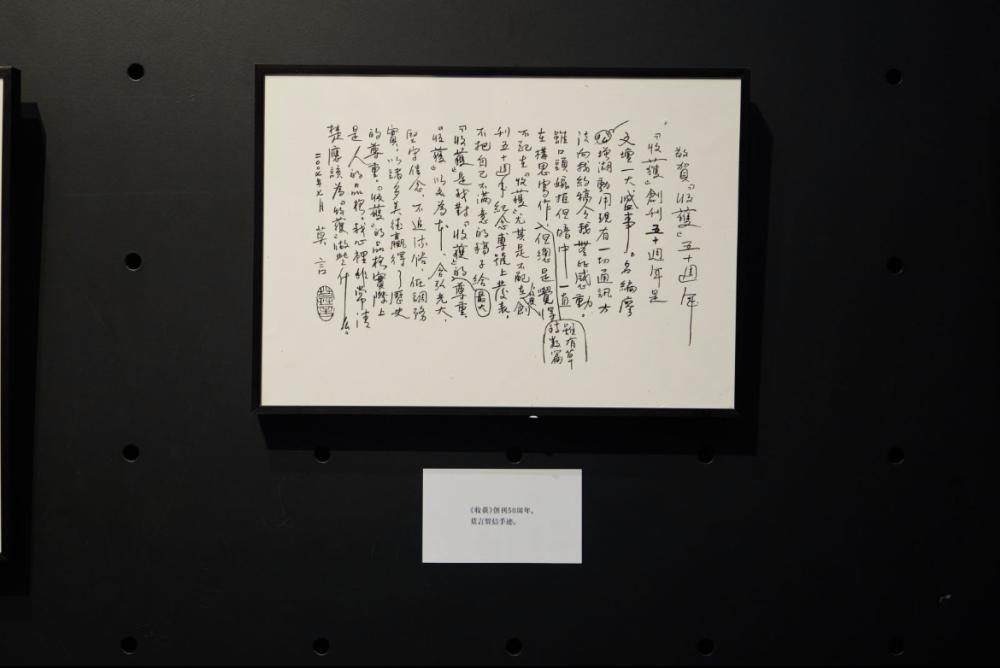 敬賀『收獲』五十週年
『收獲』創刊五十週年是
文壇一大盛事。名編廖
增湖動用現有一切通訊方
法向我約稿令我感動。
雖口頭婉拒但暗中一直
在構思寫作，但總是覺得
雖有草
稿數篇
不配在『收獲』尤其是不配在創
刊五十週年紀念專號上發表。
不把自己不滿意的稿子給
『收獲』是我對『收獲』的尊重。
『收獲』以文為本，含弘光大，
堅守信念，不追流俗，低調務
實，以諸多美德贏得了歷史
的尊重。『收獲』的品格實際上
是人的品格，我心裡非常清
楚應該為『收獲』做些什么。
莫言
《收获》创刊50周年，
莫言贺信手迹。